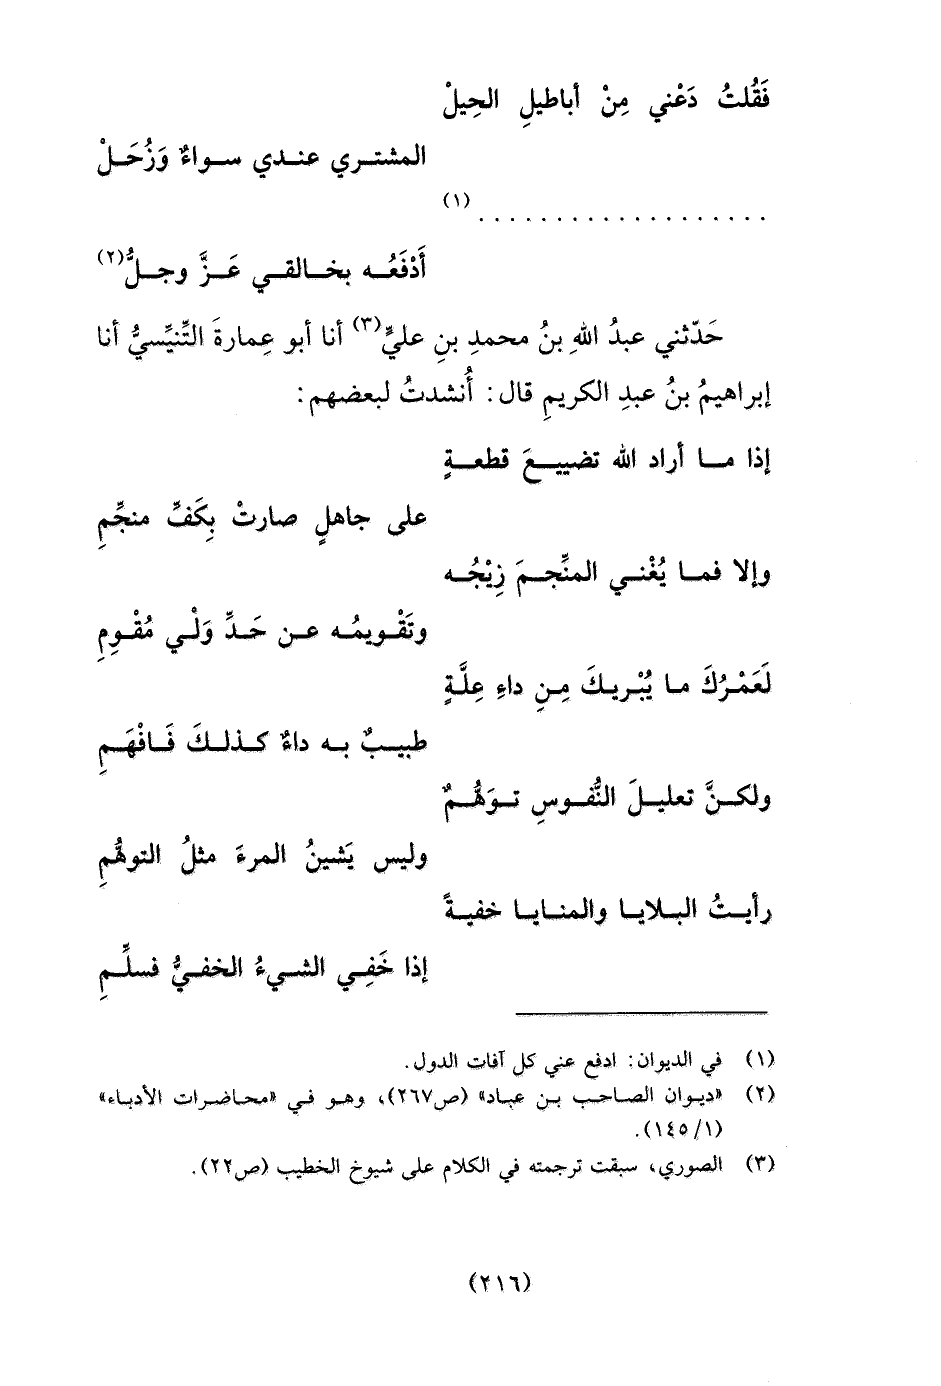 فَقُلتُ دَعْني مِنْ أباطيلِ الحِيلْ
المشتري عندي سواءٌ وَزُحَلْ
. . . . . . . . . . . . . . . . . . . (١)
أَدْفَعُه بخالقي عَزَّ وجلُّ(٢)
حَدّثني عبدُ اللهِ بنُ محمدِ بنِ عليٍّ(٣) أنا أبو عِمارةَ التِّنيِّسيُّ أنا
إبراهيمُ بنُ عبدِ الكريمِ قال: أُنشدتُ لبعضهم:
إذا ما أراد الله تضييعَ قطعةٍ
على جاهلٍ صارتْ بِكَفِّ منجِّمِ
وإلا فما يُغْني المنِّجمَ زِيْجُه
وتَقْويمُه عن حَدِّ وَلْي مُقْوِمِ
لَعَمْرُكَ ما يُبْريكَ مِنِ داءِ عِلَّةٍ
طبيبٌ به داءٌ كذلكَ فَافْهَمِ
ولكنَّ تعليلَ النُّفوسِ توَهُّمٌ
وليس يَشينُ المرءَ مثلُ التوهُّمِ
رأيتُ البلايا والمنايا خفيةً
إذا خَفِي الشيءُ الخفيُّ فسلِّمِ
(١) في الديوان: ادفع عني كل آفات الدول.
(٢) «ديوان الصاحب بن عباد» (ص٢٦٧)، وهو في «محاضرات الأدباء»
(١/ ١٤٥).
(٣) الصوري، سبقت ترجمته في الكلام على شيوخ الخطيب (ص٢٢).
(٢١٦)